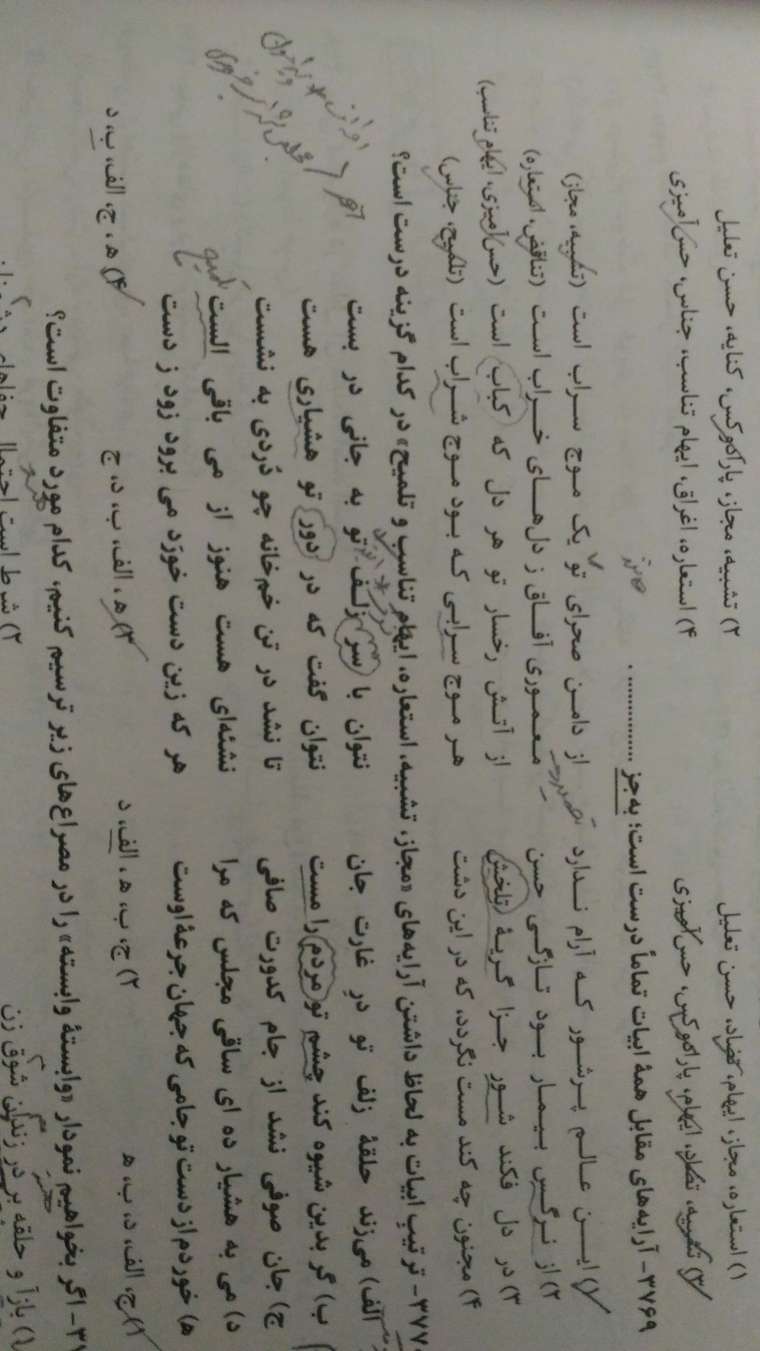 ۱) استعاره، مجاز، ایهام، تضاد، حسن تعلیل
۲) تشبیه، مجاز، پارادوکس، کنایه، حسن تعلیل
۳) تشبیه، تضاد، ایهام، پارادوکس، حس‌آمیزی
۴) استعاره، اغراق، ایهام تناسب، جناس، حس‌آمیزی
۳۷۶۹- آرایه‌های مقابل همهٔ ابیات تماماً درست است؛ به‌جز ................ .
۱) ایـن عـالـم پـرشـور کـه آرام نـدارد از دامـن صحرای تو یک مـوج سـراب است (تشبیه، مجاز)
۲) از نرگس بیـمـار بـود تـازگـی حسن معـمـوری آفـاق ز دل‌هـای خـراب اسـت (تناقض، استعاره)
۳) در دل فکند شـور جـزا گـریـهٔ تلخش از آتـش رخسار تـو هـر دل کـه کباب است (حس‌آمیزی، ایهام تناسب)
۴) مجنون چه کند مست نگردد، که در این دشت هـر مـوج سـرابی کـه بـود مـوج شـراب است (تلمیح، جناس)
۳۷۷۰- ترتیب ابیات به لحاظ داشتن آرایه‌های «مجاز، تشبیه، استعاره، ایهام تناسب و تلمیح» در کدام گزینه درست است؟
الف) می‌زند حلقهٔ زلف تو درِ غارت جان نتوان با سر زلف تو به جانی در بست
ب) گر بدین شیوه کند چشم تو مردم را مست نتوان گفت که در دور تو هشیاری هست
ج) جان صوفی نشد از جام کدورت صافی تا نشد در تن خم‌خانه چو دُردی به نشست
د) می به هشیار ده ای ساقی مجلس که مرا نشئه‌ای هست هنوز از می باقی الست
ه) خوردم از دست تو جامی که جهان جرعهٔ اوست هر که زین دست خورَد می برود زود ز دست
۱) ج، الف، د، ب، ه
۲) ج، ب، ه، الف، د
۳) ه، الف، ب، د، ج
۴) ه، ج، الف، ب، د
اگر بخواهیم نمودار «وابستهٔ وابسته» را در مصراع‌های زیر ترسیم کنیم، کدام مورد متفاوت است؟
۱) بازآ و حلقه بر در زندان شوق زن
۲) شرط است احتمال جفاهای